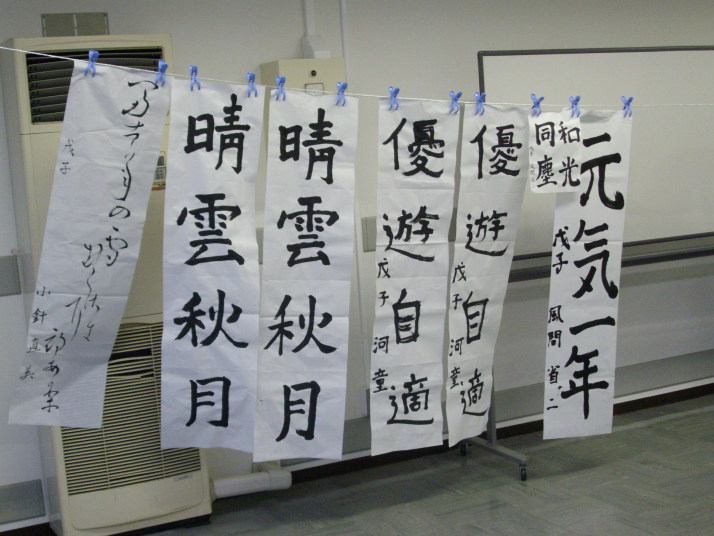 戊子
小針
晴雲秋月
晴雲秋月
優遊自適
戊子 河童
優遊自適
戊子 河童
和光
同塵
元気一年
戊子 風間 省二